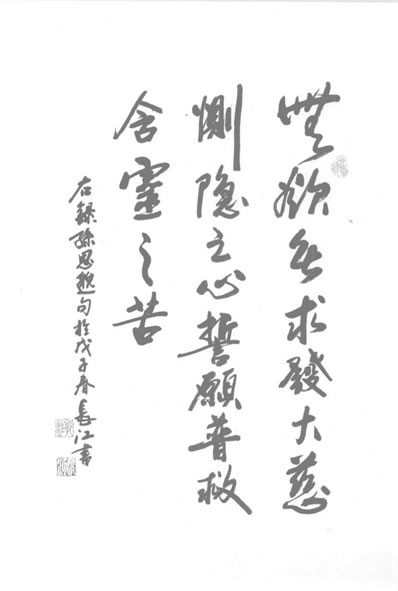 無欲無求發大慈
惻隐之心誓願普救
含靈之苦
右錄孫思邈句於戊子春長江書